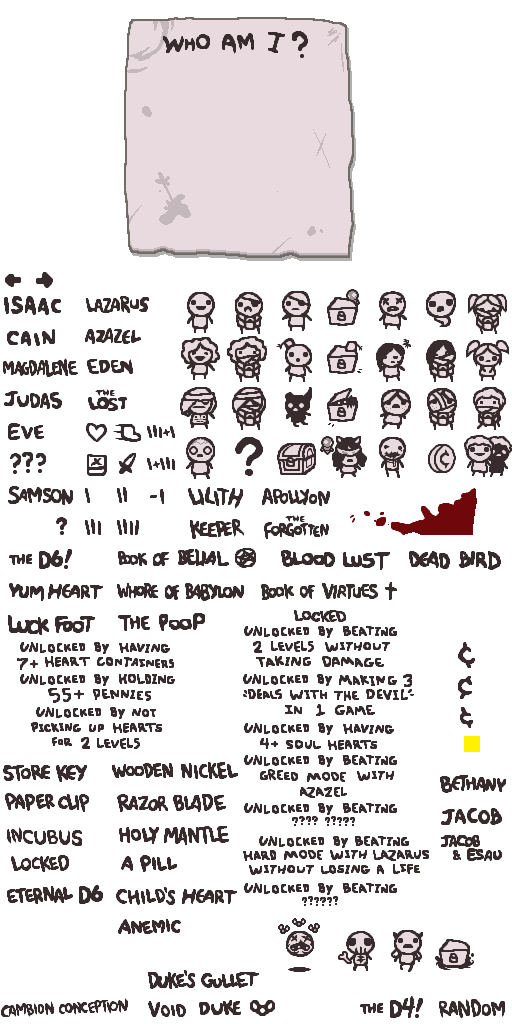 WHO AM I?
ISAAC LAZARUS
CAIN AZAZEL
MAGDALENE EDEN
JUDAS THE LOST
EVE III+I
??? I+III
?
SAMSON I II -I LILITH APOLLYON
? III IIII KEEPER THE FORGOTTEN
THE D6! BOOK OF BELIAL BLOOD LUST DEAD BIRD
YUM HEART WHORE OF BABYLON BOOK OF VIRTUES †
LUCK FOOT THE POOP
LOCKED
UNLOCKED BY HAVING
7+ HEART CONTAINERS
UNLOCKED BY HOLDING
55+ PENNIES
UNLOCKED BY NOT
PICKING UP HEARTS
FOR 2 LEVELS
UNLOCKED BY BEATING
2 LEVELS WITHOUT
TAKING DAMAGE
UNLOCKED BY MAKING 3
"DEALS WITH THE DEVIL"
IN 1 GAME
UNLOCKED BY HAVING
4+ SOUL HEARTS
UNLOCKED BY BEATING
GREED MODE WITH
AZAZEL
UNLOCKED BY BEATING
???? ?????
UNLOCKED BY BEATING
HARD MODE WITH LAZARUS
WITHOUT LOSING A LIFE
UNLOCKED BY BEATING
??????
¢
¢
¢
STORE KEY WOODEN NICKEL
PAPER CLIP RAZOR BLADE
INCUBUS HOLY MANTLE
LOCKED A PILL
ETERNAL D6 CHILD'S HEART
ANEMIC
BETHANY
JACOB
JACOB
& ESAU
DUKE'S GULLET
CAMBION CONCEPTION VOID DUKE THE D4! RANDOM